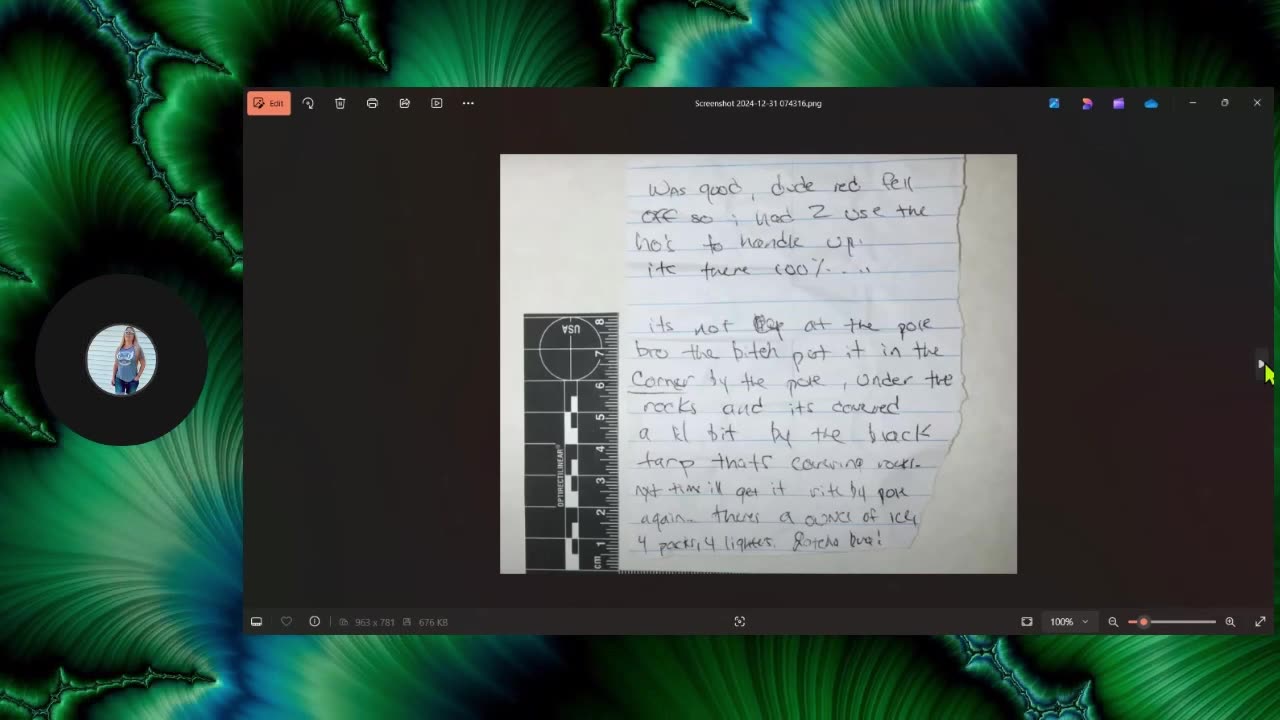 Edit
Screenshot 2024-12-31 074316.png
Was good, dude red fell
off so i had 2 use the
ho's to handle up.
its there 100%.....
its not at the pole
bro the bitch put it in the
corner by the pole, under the
rocks and its covered
a lil bit by the black
tarp thats covering rocks.
nxt time ill get it rite by pole
again. theres a ounce of ice,
4 packs, 4 lighters. Gotcha bro!
USA
8
7
6
5
4
3
2
1
cm
OPTIRECTILINEAR
963 x 781
676 KB
100%